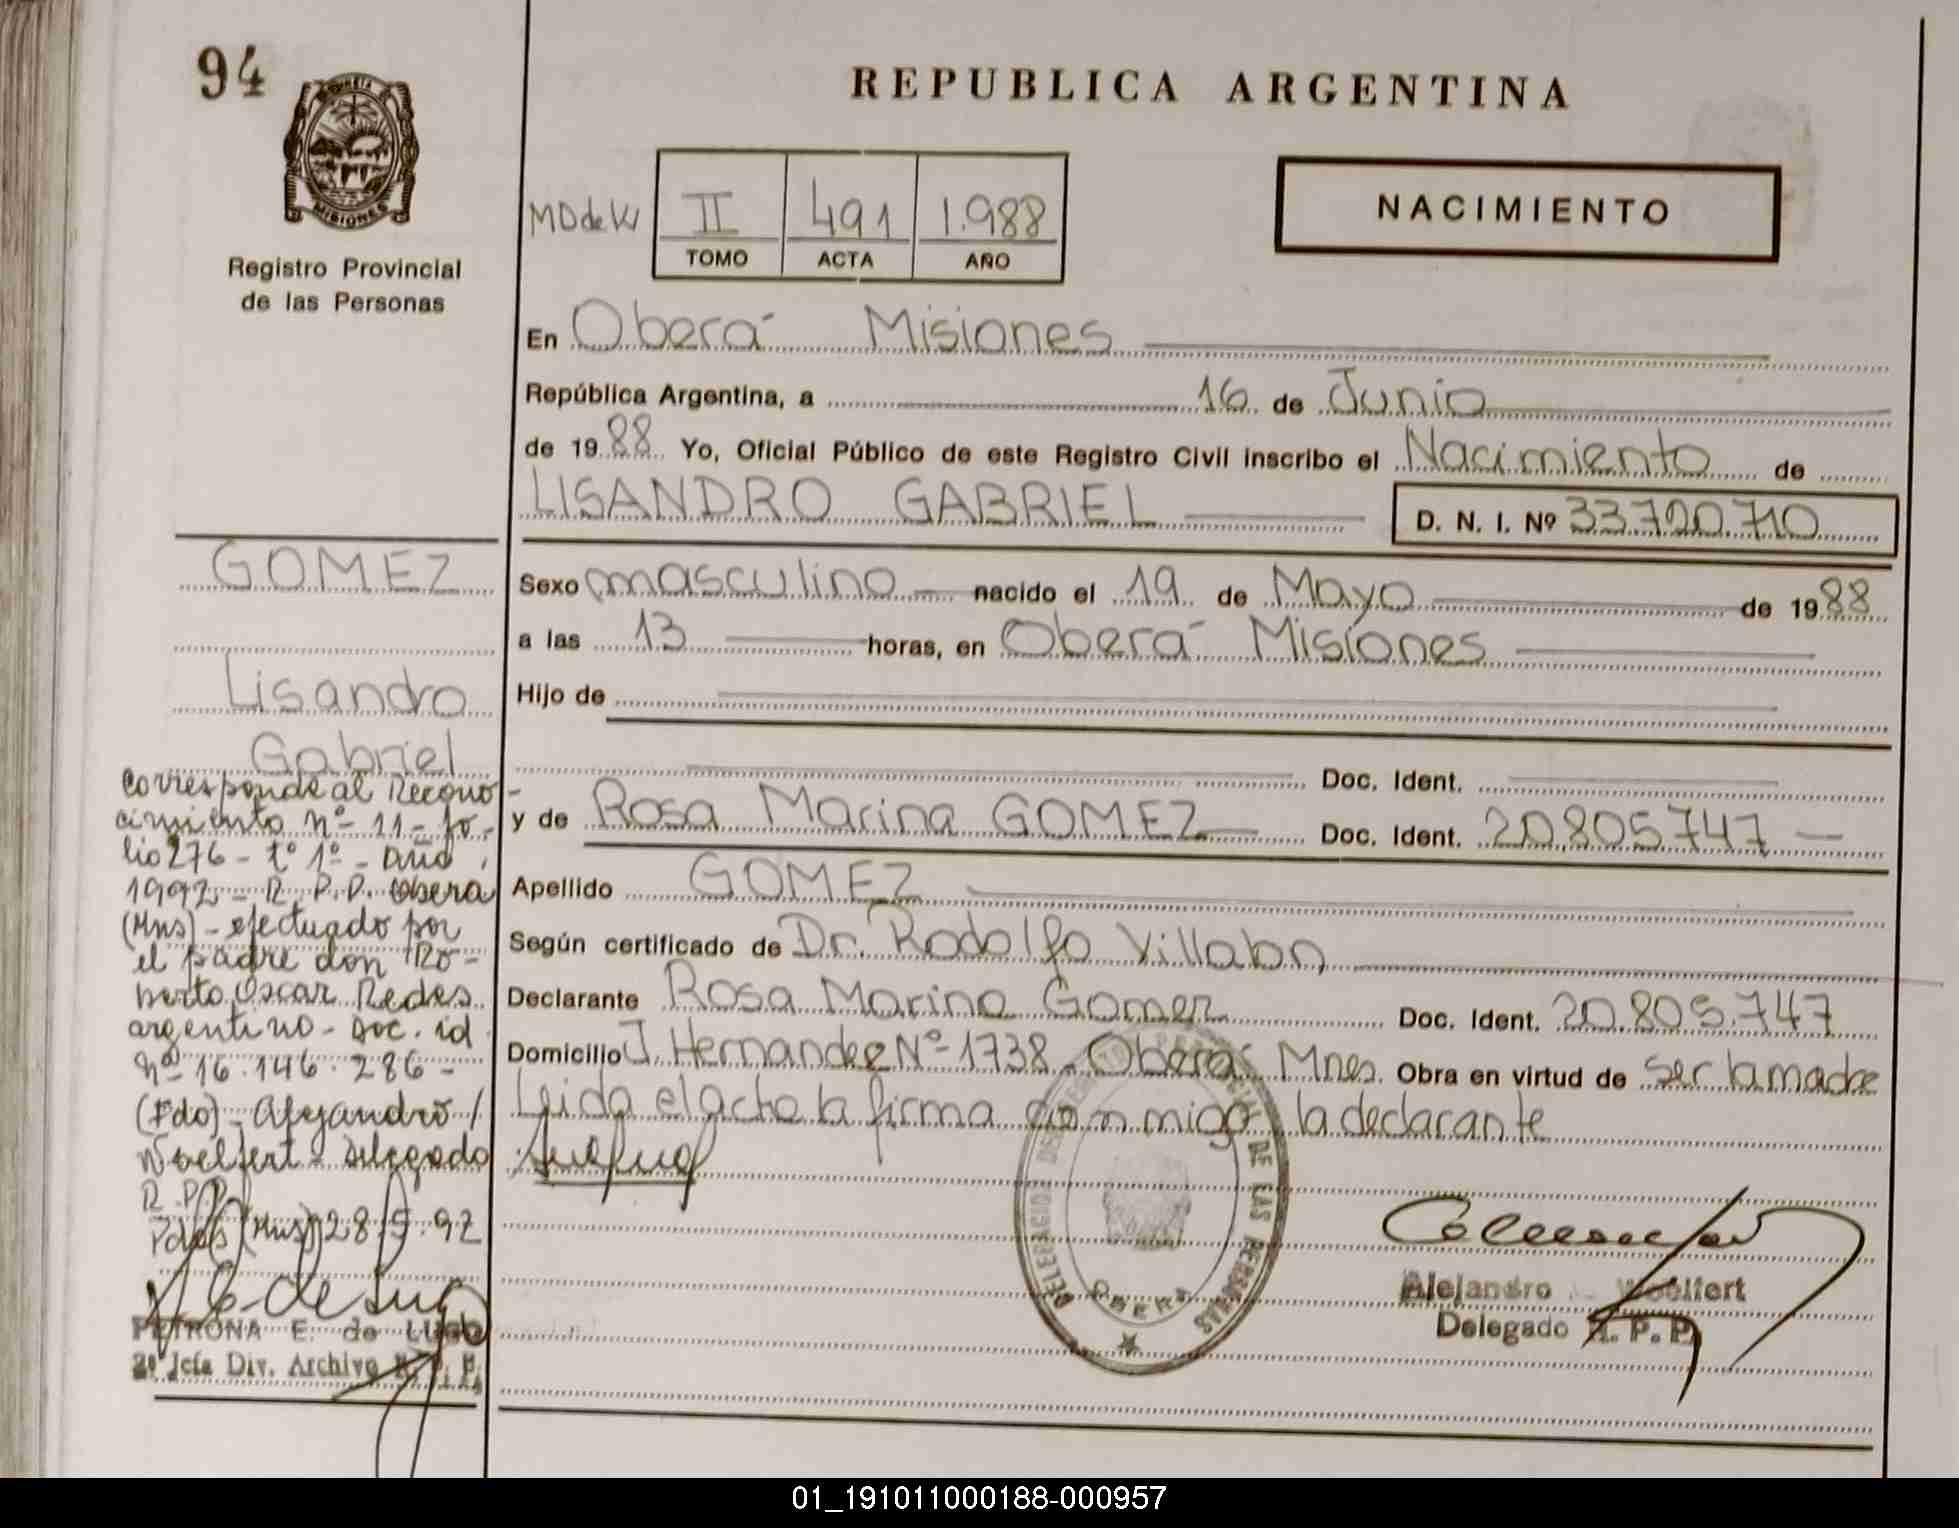 94
MISIONES
Registro Provincial
de las Personas
REPUBLICA ARGENTINA
II 491 1.988
TOMO ACTA AÑO
NACIMIENTO
En Oberá Misiones
República Argentina, a 16 de Junio
de 1988 Yo, Oficial Público de este Registro Civil inscribo el Nacimiento de
LISANDRO GABRIEL D. N. I. Nº 33.720.710
Sexo masculino nacido el 19 de Mayo de 1988
a las 13 horas, en Oberá Misiones
Hijo de
Doc. Ident.
y de Rosa Marina GOMEZ Doc. Ident. 20.805.747
Apellido GOMEZ
Según certificado de Dr. Rodolfo Villabn
Declarante Rosa Marina Gomez Doc. Ident. 20.805.747
Domicilio J. Hernandez Nº 1738 Oberá Mnes. Obra en virtud de ser la madre
Leida el acta la firma conmigo la declarante
DELEGACION DEL REGISTRO PROVINCIAL DE LAS PERSONAS
OBERA
Alejandro Woelfert
Delegado R. P. P.
GOMEZ
Lisandro
Gabriel
Corresponde al Recono-
cimiento nº 11 - fo-
lio 276 - tº 1º - año
1992 - R. P. P. Oberá
(Mns) - efectuado por
el padre don Ro-
berto Oscar Redes
argentino - Doc. id
nº 16.146.286 -
(Fdo) - Alejandro /
Woelfert - Delegado
R. P. P.
Pdas (Mns) 28.5.92
PETRONA E. de LUGO
2º Jefa Div. Archivo R. P. P.
01_191011000188-000957